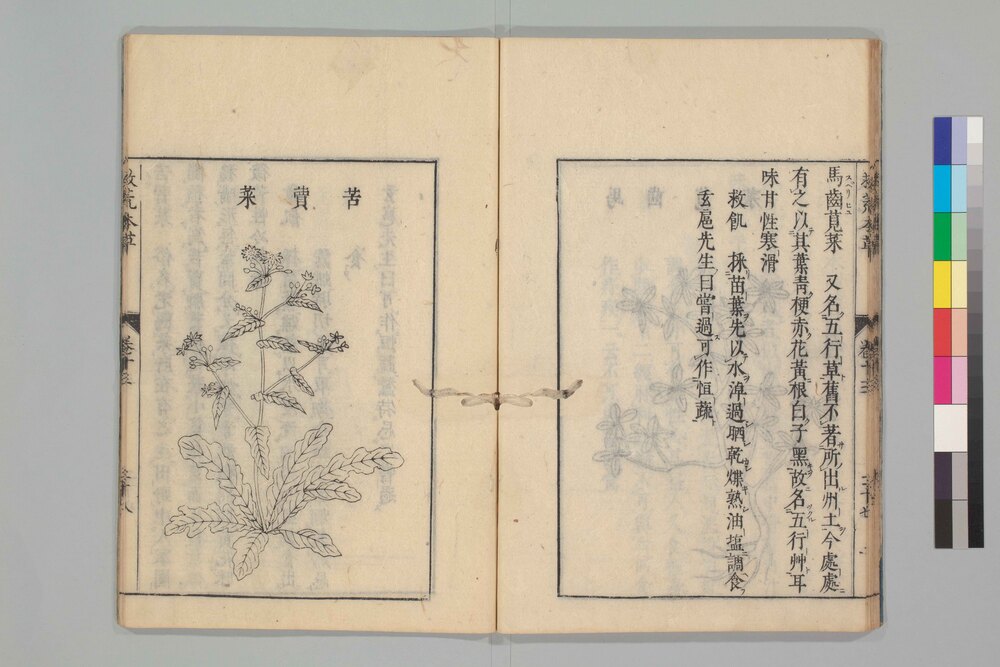 馬齒莧菜　又名五行草舊不著所出州土今處處
スベリヒユ
有之以其葉青梗赤花黃根白子黑故名五行艸耳
味甘性寒滑
救飢　採苗葉先以水淖過晒乾煠熟油塩調食
玄扈先生曰嘗過可作恒蔬
苦蕒菜
救荒本草
卷十三